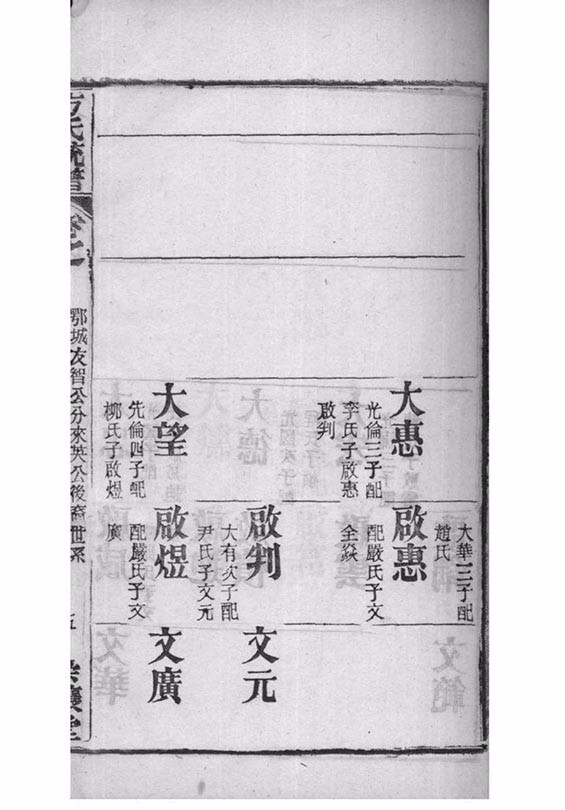 大惠
光倫三子配
李氏子啟惠
啟判
大望
先倫四子配
柳氏子啟煜
大華三子配
趙氏
啟惠
配嚴氏子文
全焱
啟判
大有次子配
尹氏子文元
啟煜
配嚴氏子文
廣
文元
文廣
方氏統譜
卷之一
鄂城友智公分來英公後裔世系
五